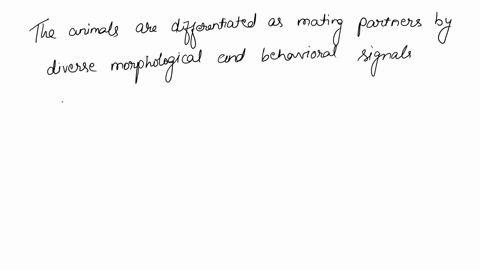 The animals are differentiated as mating partners by
diverse morphological and behavioral signals